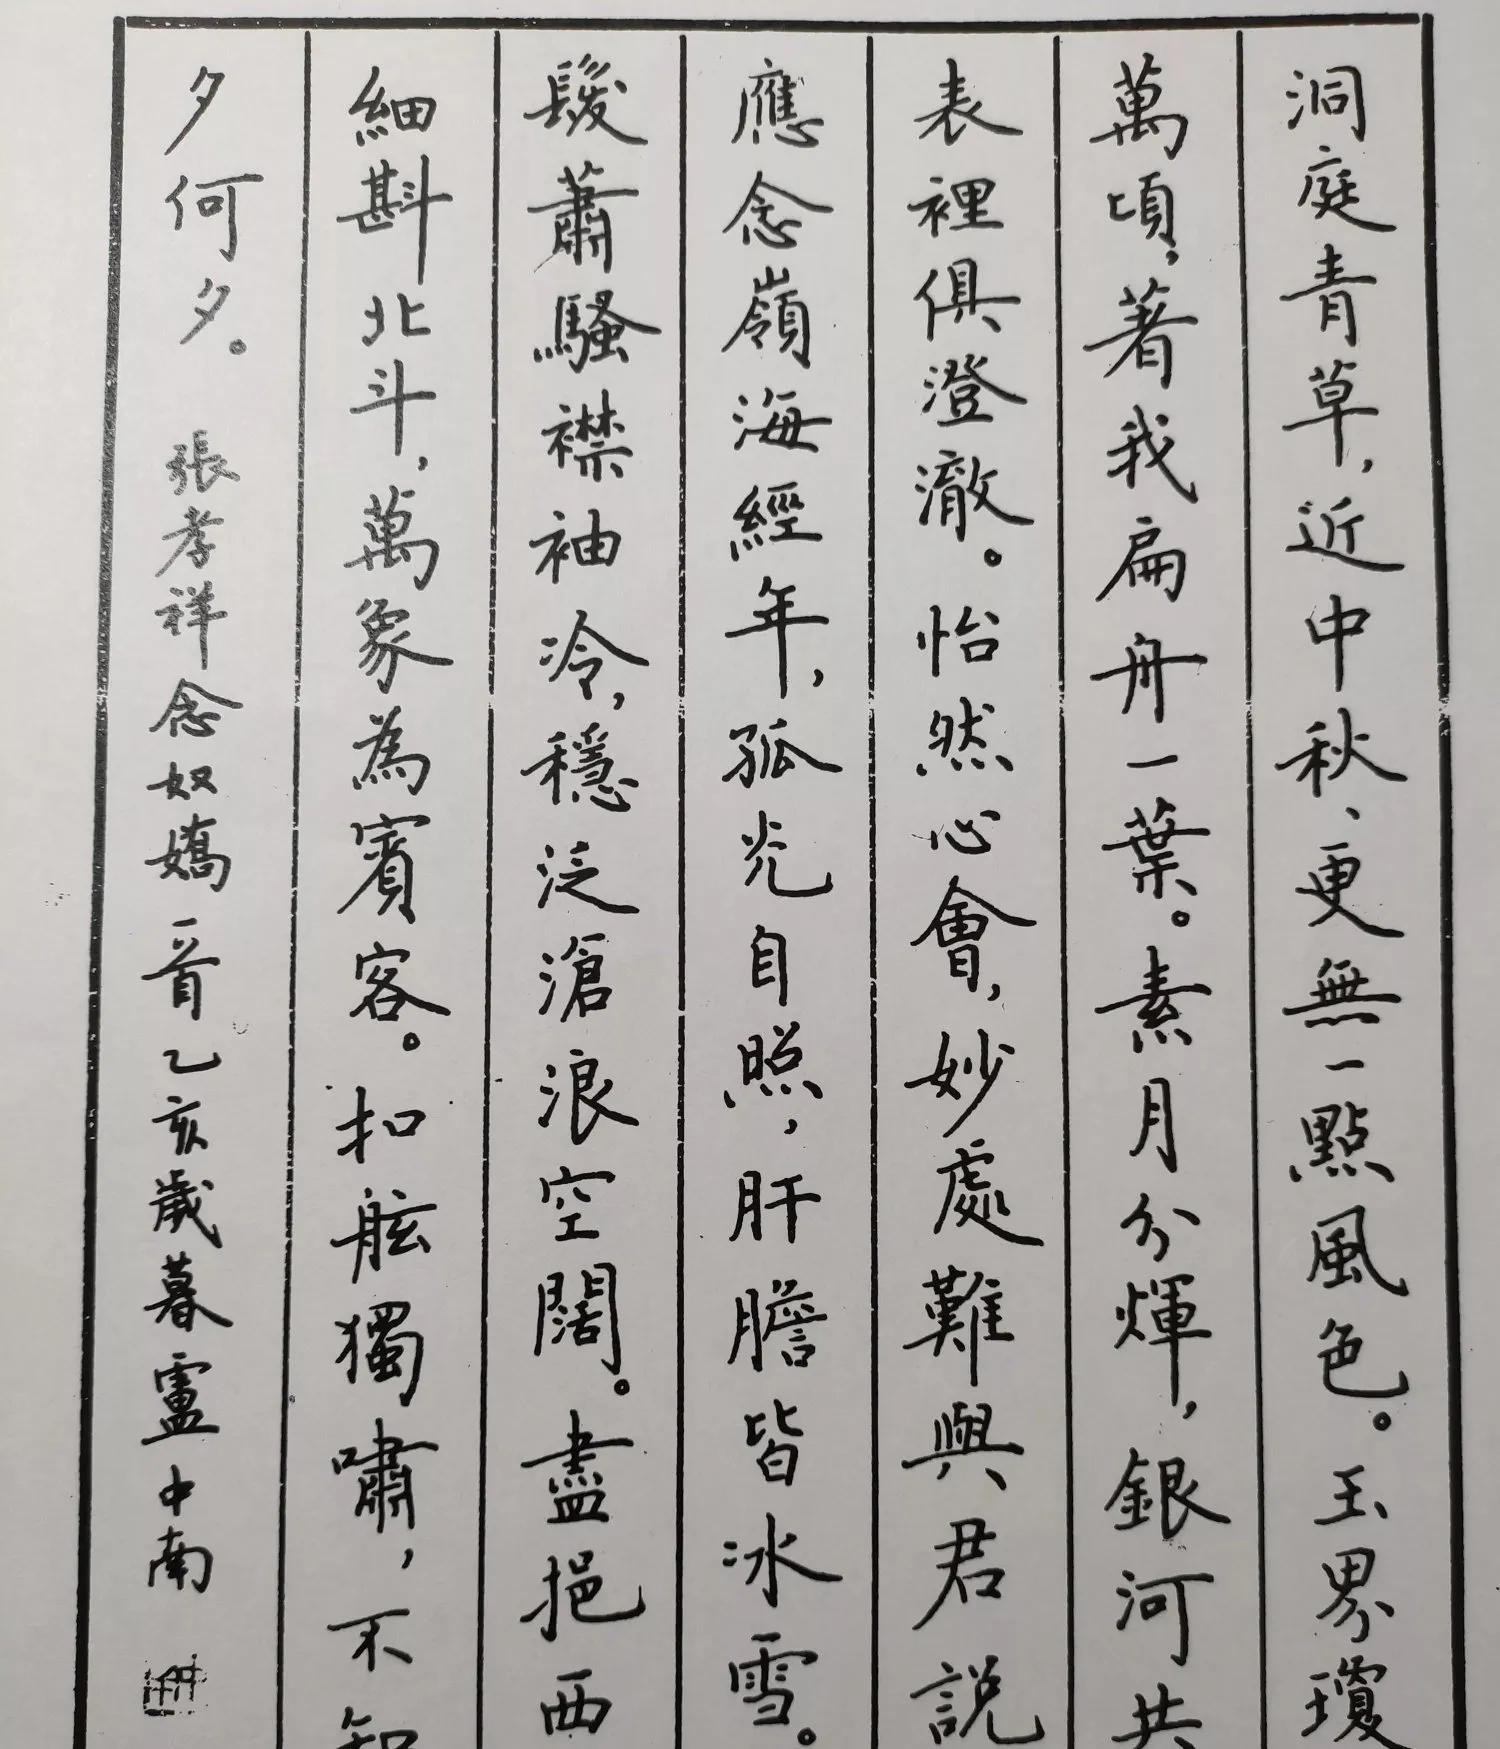 洞庭青草，近中秋、更無一點風色。玉界瓊
萬頃，著我扁舟一葉。素月分輝，銀河共
表裡俱澄澈。怡然心會，妙處難與君説
應念嶺海經年，孤光自照，肝膽皆冰雪。
髮蕭騷襟袖冷，穩泛滄浪空闊。盡挹西
細斟北斗，萬象為賓客。扣舷獨嘯，不知
夕何夕。張孝祥念奴嬌一首乙亥歲暮盧中南